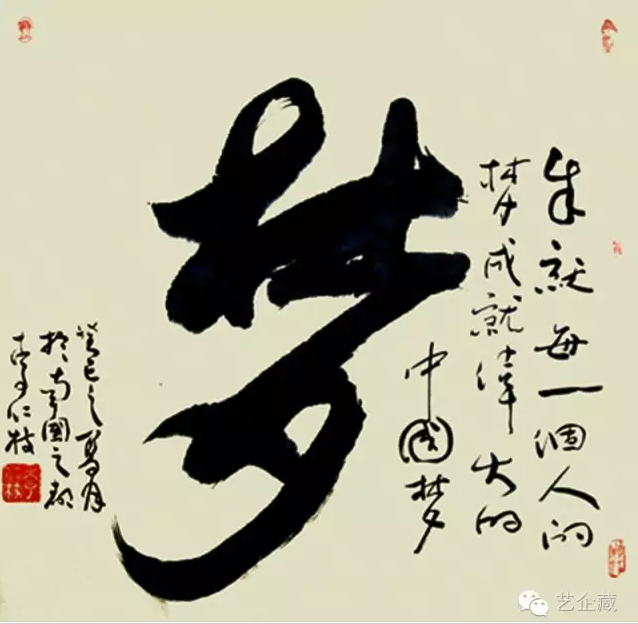 成就每一個人的
梦成就偉大的
中國梦
梦
癸巳之夏月
於南國之都
仁枝
艺企藏